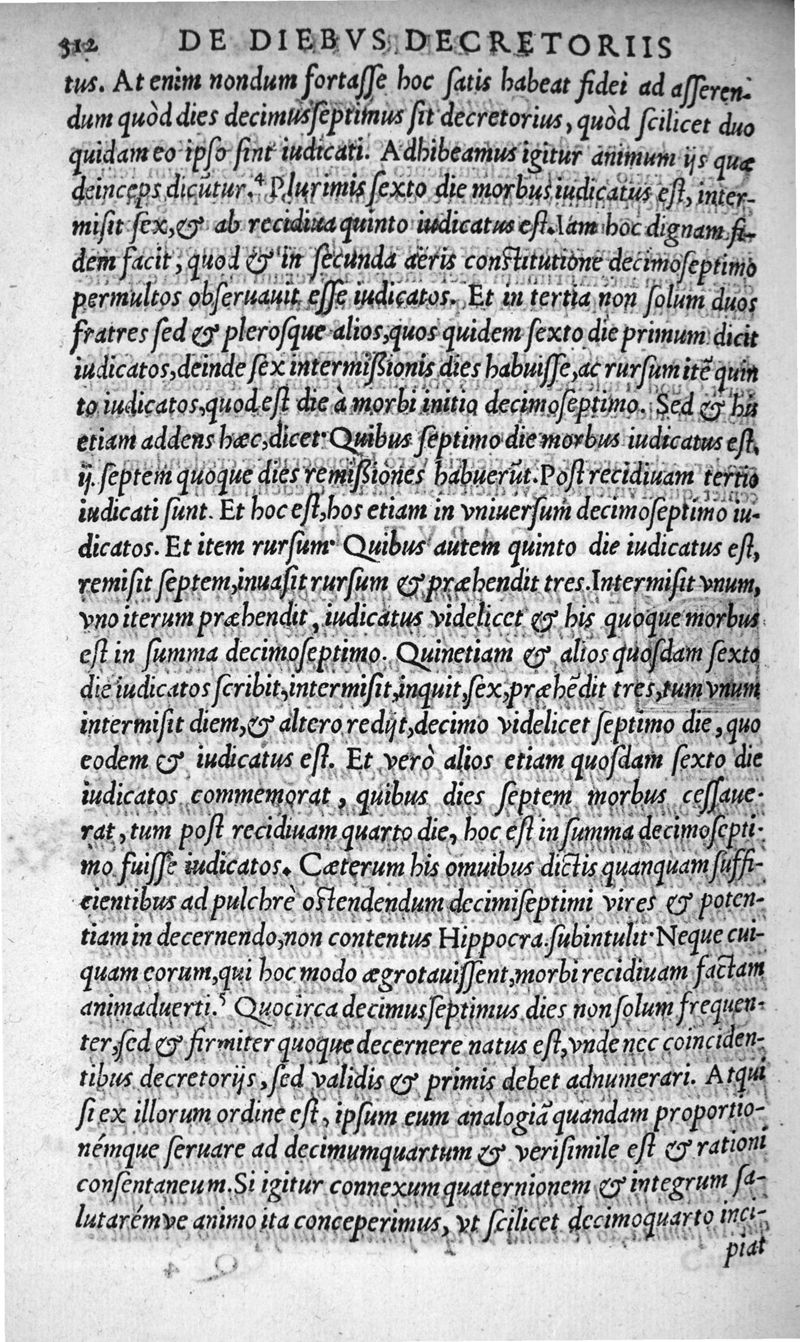 312 DE DIEBVS DECRETORIIS
tus. At enim nondum fortaſſe hoc ſatis habeat fidei ad aſſeren-
dum quòd dies decimusſeptimus ſit decretorius, quòd ſcilicet duo
quidam eo ipſo ſint iudicati. Adhibeamus igitur animum ijs quæ
deinceps dicũtur.⁴ Plurimis ſexto die morbus iudicatus eſt, inter-
miſit ſex, & ab recidiua quinto iudicatus eſt. Iam hoc dignam fi-
dem facit, quod & in ſecunda aëris conſtitutione decimoſeptimo
permultos obſeruauit eſſe iudicatos. Et in tertia non ſolum duos
fratres ſed & pleroſque alios, quos quidem ſexto die primum dicit
iudicatos, deinde ſex intermiſsionis dies habuiſſe, ac rurſum itẽ quin
to iudicatos, quod eſt die à morbi initio decimoſeptimo. Sed & his
etiam addens hæc, dicet· Quibus ſeptimo die morbus iudicatus eſt,
ij. ſeptem quoque dies remiſsiones habuerũt. Poſt recidiuam tertio
iudicati ſunt. Et hoc eſt, hos etiam in vniuerſum decimoſeptimo iu-
dicatos. Et item rurſum· Quibus autem quinto die iudicatus eſt,
remiſit ſeptem, inuaſit rurſum & præhendit tres. Intermiſit vnum,
vno iterum præhendit, iudicatus videlicet & his quoque morbus
eſt in ſumma decimoſeptimo. Quinetiam & alios quoſdam ſexto
die iudicatos ſcribit, intermiſit, inquit, ſex, præhẽdit tres, tum vnum
intermiſit diem, & altero redijt, decimo videlicet ſeptimo die, quo
eodem & iudicatus eſt. Et verò alios etiam quoſdam ſexto die
iudicatos commemorat, quibus dies ſeptem morbus ceſſaue-
rat, tum poſt recidiuam quarto die, hoc eſt in ſumma decimoſepti-
mo fuiſſe iudicatos. Cæterum his omuibus dictis quanquam ſuffi-
cientibus ad pulchrè oſtendendum decimiſeptimi vires & poten-
tiam in decernendo, non contentus Hippocra. ſubintulit· Neque cui-
quam eorum, qui hoc modo ægrotauiſſent, morbi recidiuam factam
animaduerti.⁵ Quocirca decimusſeptimus dies non ſolum frequen-
ter, ſed & firmiter quoque decernere natus eſt, vnde nec coinciden-
tibus decretorijs, ſed validis & primis debet adnumerari. Atqui
ſi ex illorum ordine eſt, ipſum eum analogiã quandam proportio-
némque ſeruare ad decimumquartum & veriſimile eſt & rationi
conſentaneum. Si igitur connexum quaternionem & integrum ſa-
lutarémve animo ita conceperimus, vt ſcilicet decimoquarto inci-
piat